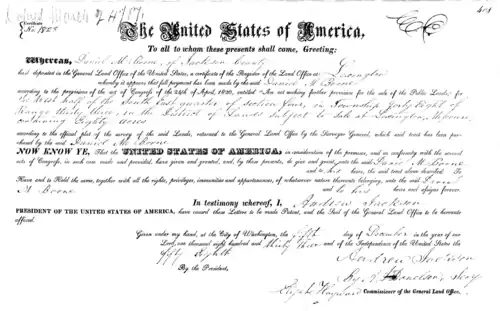 March 24
401
Certificate
No. 1825
The United States of America,
To all to whom these presents shall come, Greeting:
Whereas, Daniel M. Boone, of Jackson County
has deposited in the General Land Office of the United States, a certificate of the Register of the Land Office at Lexington
whereby it appears that full payment has been made by the said Daniel M. Boone
according to the provisions of the act of Congress of the 24th of April, 1820, entitled "An act making further provision for the sale of the Public Lands," for
the West half of the South East quarter of section four, in Township forty Eight, of
Range thirty three, in the District of Lands subject to sale at Lexington, Missouri,
containing Eighty acres
according to the official plat of the survey of the said Lands, returned to the General Land Office by the Surveyor General, which said tract has been purchased
by the said Daniel M. Boone
NOW KNOW YE, That the UNITED STATES OF AMERICA, in consideration of the premises, and in conformity with the several
acts of Congress, in such case made and provided, have given and granted, and, by these presents, do give and grant, unto the said Daniel M. Boone
and to his heirs, the said tract above described. To
Have and to Hold the same, together with all the rights, privileges, immunities and appurtenances, of whatsoever nature thereunto belonging, unto the said Daniel
M. Boone and to his heirs and assigns forever.
In testimony whereof, I, Andrew Jackson
PRESIDENT OF THE UNITED STATES OF AMERICA, have caused these Letters to be made Patent, and the Seal of the General Land Office to be hereunto
affixed.
Given under my hand, at the City of Washington, the fifth day of December in the year of our
Lord, one thousand eight hundred and thirty three and of the Independence of the United States the
fifty Eighth
Andrew Jackson
By the President, By A. J. Donelson Secy
Elijah Hayward Commissioner of the General Land Office.